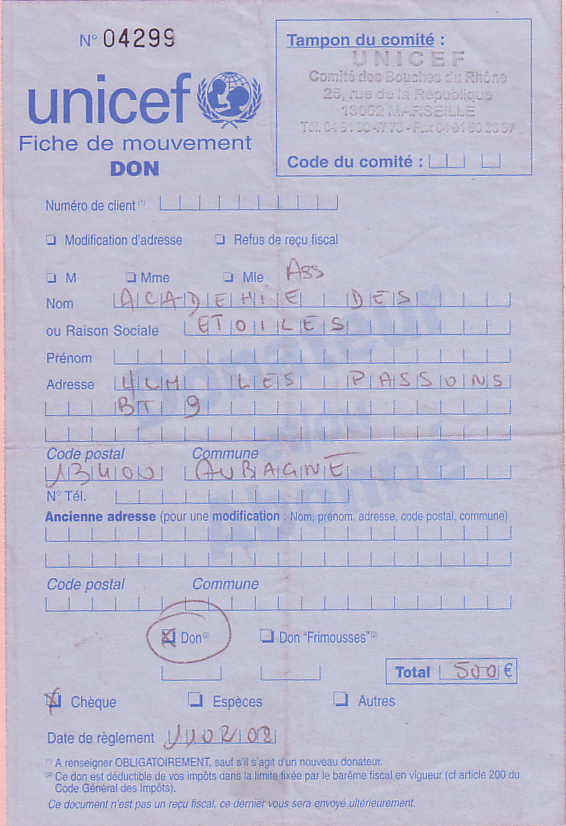 N° 04299
unicef
Fiche de mouvement
DON
Tampon du comité :
UNICEF
Comité des Bouches du Rhône
25, rue de la République
13002 MARSEILLE
Code du comité :
Numéro de client (1)
Modification d'adresse Refus de reçu fiscal
M Mme Mle Ass
Nom ACADEMIE DES
ou Raison Sociale ETOILES
Prénom
Adresse 4CH LES PASSONS
BT 9
Code postal Commune
13400 AUBAGNE
N° Tél.
Ancienne adresse (pour une modification : Nom, prénom, adresse, code postal, commune)
Code postal Commune
Don (2) Don "Frimousses" (2)
Total 500 €
Chèque Espèces Autres
Date de règlement 11 02 08
(1) A renseigner OBLIGATOIREMENT, sauf s'il s'agit d'un nouveau donateur.
(2) Ce don est déductible de vos impôts dans la limite fixée par le barême fiscal en vigueur (cf article 200 du
Code Général des Impôts).
Ce document n'est pas un reçu fiscal, ce dernier vous sera envoyé ultérieurement.
Donateur
et/ou
Abonné